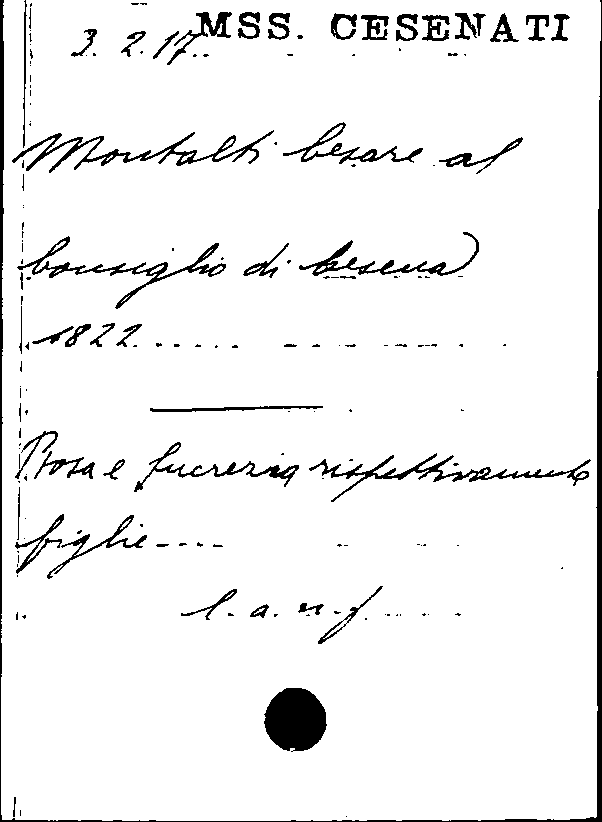 MSS. CESENATI
3. 2. 17.
Montalti Cesare al
Consiglio di Cesena
1822
Rosa e Lucrezia rispettivamente
figlie
l. a. n. f.